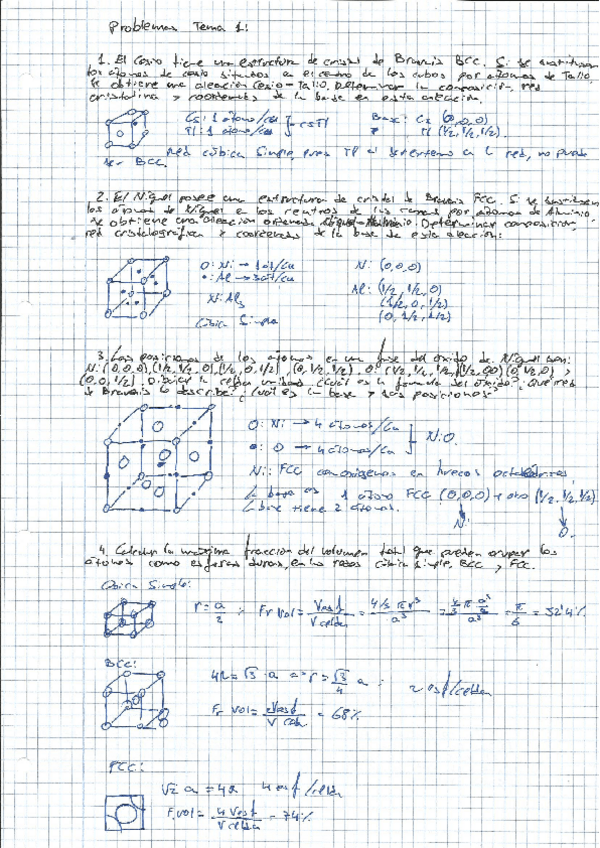 Problemas Tema 1:
1. El Cesio tiene una estructura de cristal de Bravais BCC. Si se sustituyen
los átomos de cesio situados en el centro de los cubos por átomos de Talio,
se obtiene una aleación Cesio-Talio. Determinar la composición, red
cristalina y coordenadas de la base en esta aleación.
Cs: 1 átomo/celda
Tl: 1 átomo/celda
CsTl
Base: Cs (0,0,0)
Tl (1/2, 1/2, 1/2).
Red cúbica simple, pues Tl en la red, no puede
ser BCC.
2. El Níquel posee una estructura de cristal de Bravais FCC. Si se sustituyen
los átomos de Níquel en los centros de las caras por átomos de Aluminio,
se obtiene una aleación ordenada Níquel-Aluminio. Determinar composición,
red cristalográfica y coordenadas de la base de esta aleación:
O: Ni → 1 át/Cu
•: Al → 3 át/Cu
Ni Al3
Cúbica Simple
Ni: (0,0,0)
Al: (1/2, 1/2, 0)
(1/2, 0, 1/2)
(0, 1/2, 1/2)
3. Las posiciones de los átomos en una base del óxido de Níquel son:
Ni: (0,0,0), (1/2, 1/2, 0), (1/2, 0, 1/2), (0, 1/2, 1/2) O: (1/2, 1/2, 1/2) (1/2,0,0) (0, 1/2, 0) y
(0,0, 1/2). Dibujar la celda unidad ¿Cuál es la fórmula del óxido? ¿Que red
de Bravais lo describe? ¿Cuál es la base y sus posiciones?
O: Ni → 4 átomos/Cu
•: O → 4 átomos/Cu
NiO.
Ni: FCC con oxígenos en huecos octaédricos,
La base es 1 átomo FCC (0,0,0) + otro (1/2, 1/2, 1/2).
La base tiene 2 átomos.
Ni
O.
4. Calcular la máxima fracción del volumen total que pueden ocupar los
átomos como esferas duras, en las redes cúbica simple, BCC y FCC.
Cúbica Simple:
r = a/2 ; Fr vol = Vesf/Vcelda = 4/3 π r³/a³ = 4/3 π a³/8/a³ = π/6 = 52'4%
BCC:
4R = √3 · a => r = √3/4 a ; 2 esf/celda
Fr vol = 2Vesf/V celda = 68%
FCC:
√2 a = 4R 4 esf/celda
F.vol = 4 Vesf/Vcelda = 74%